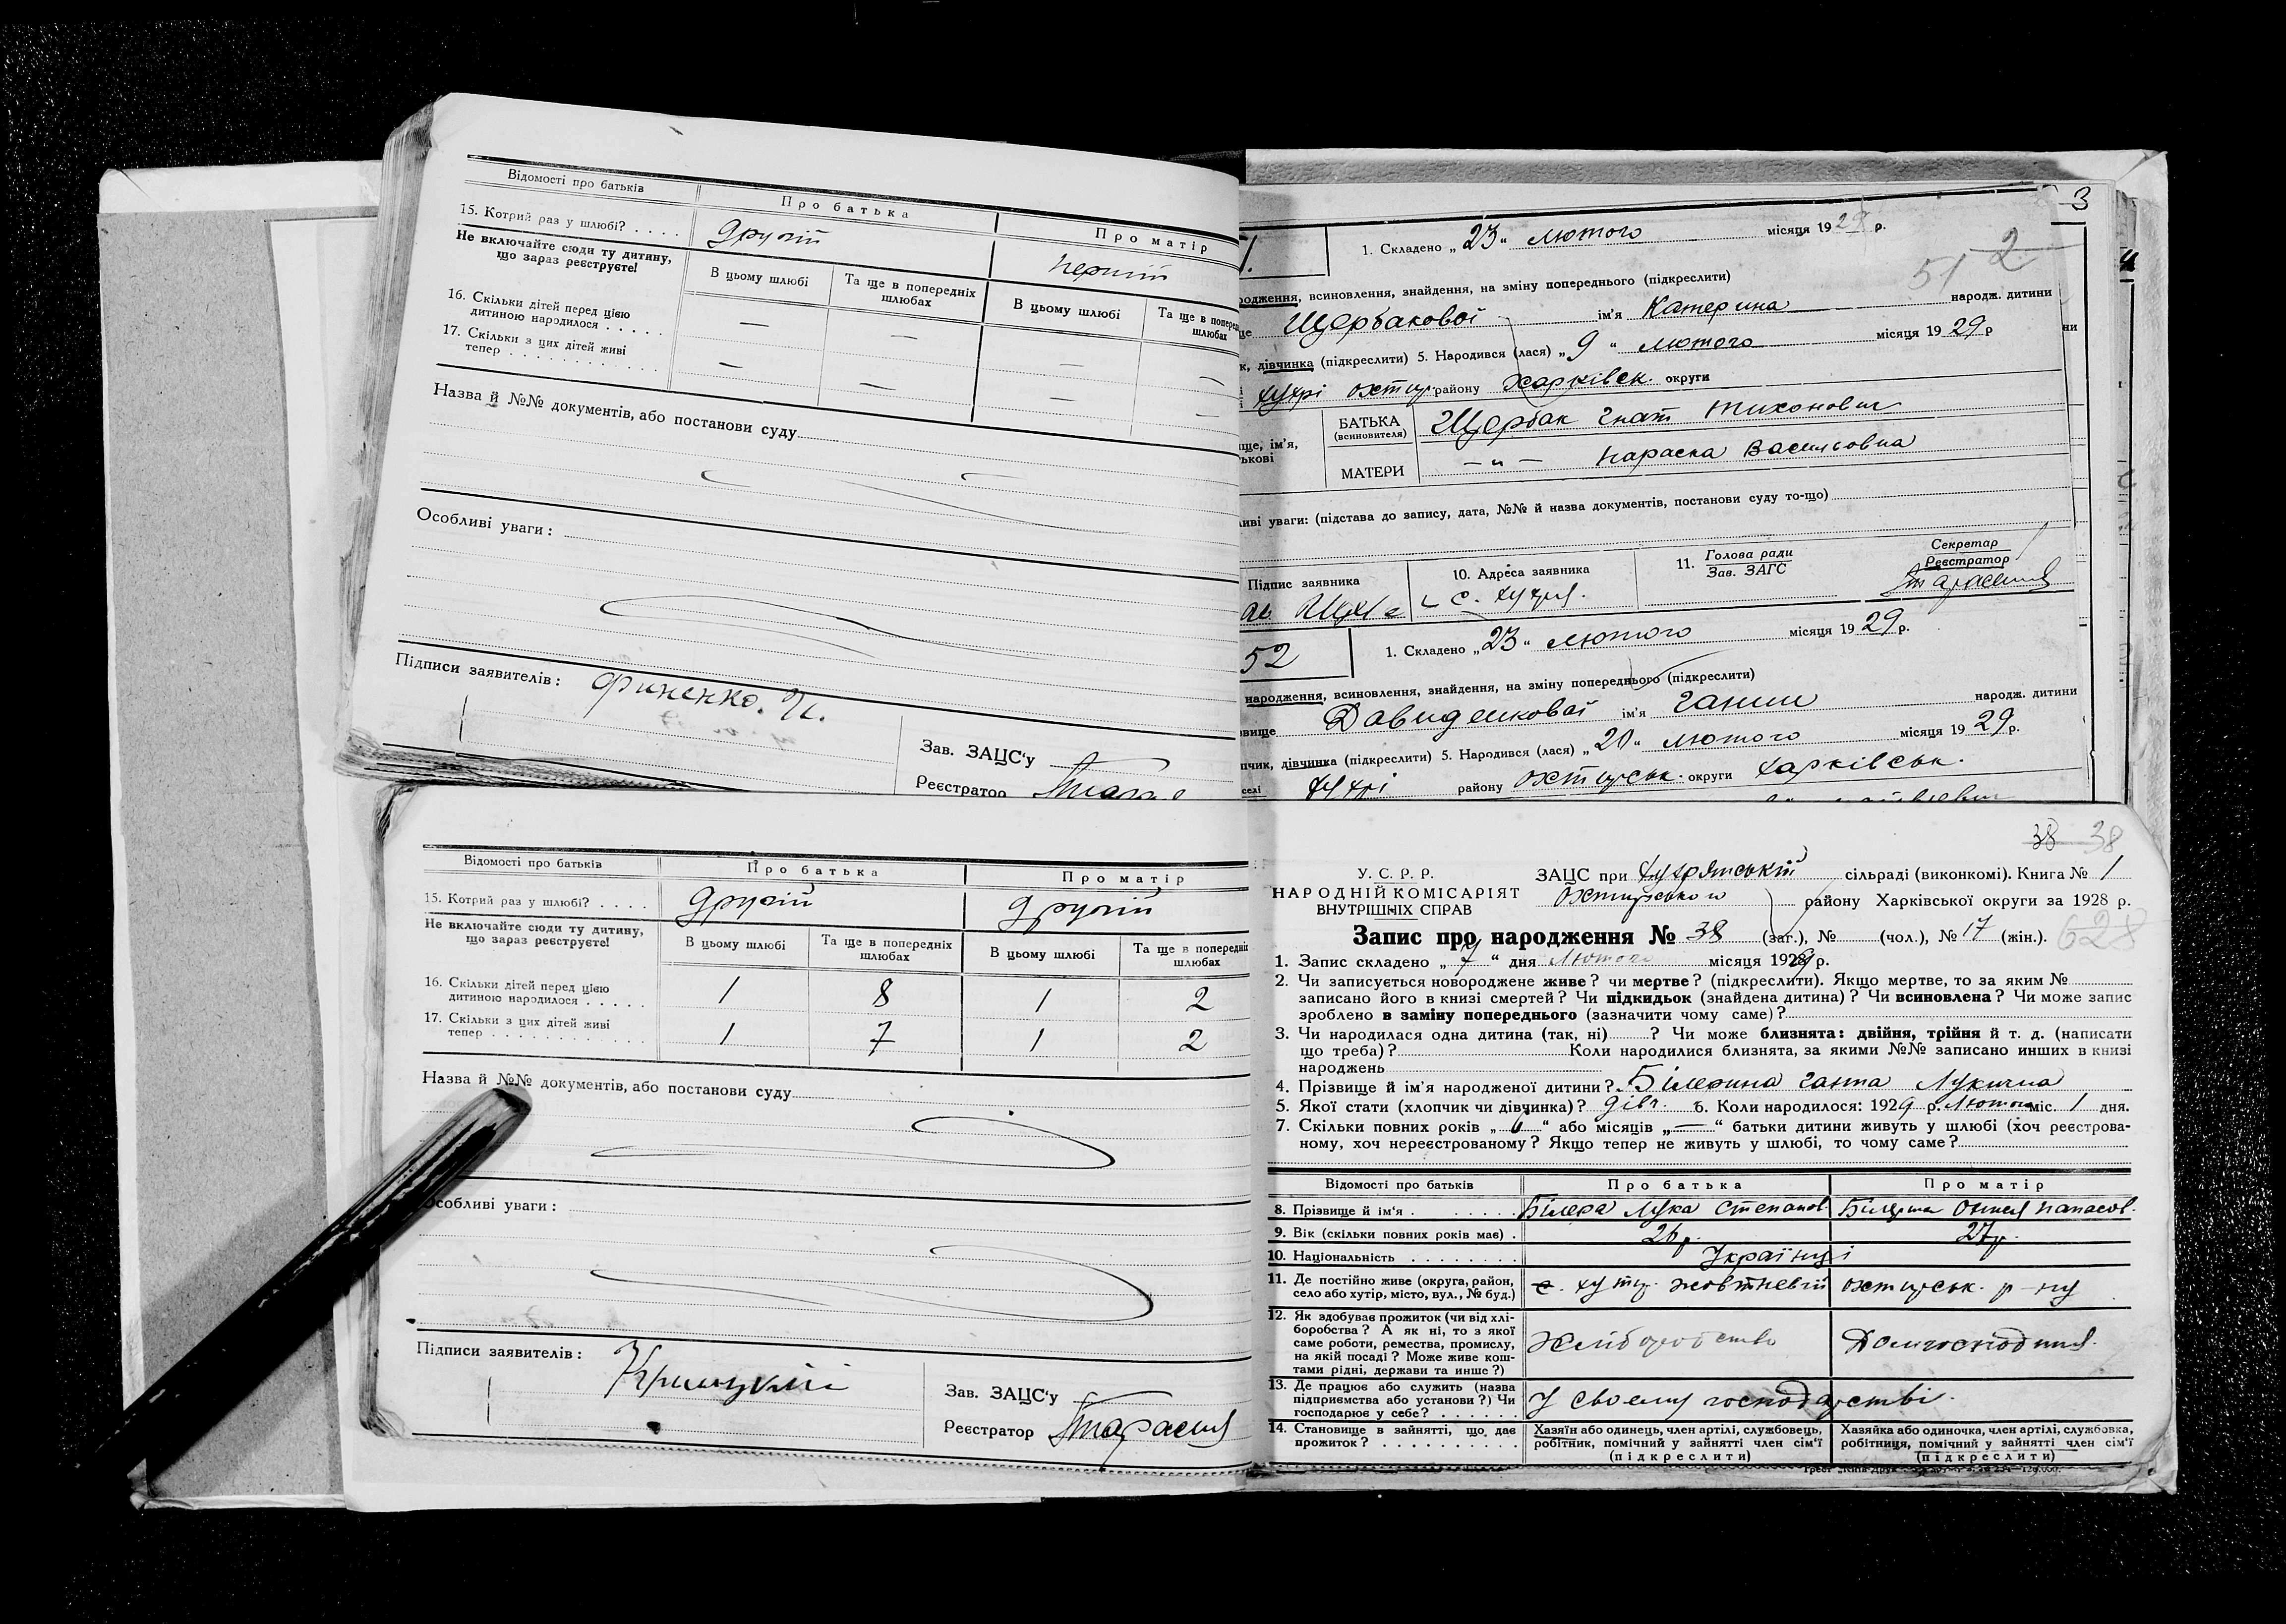 Відомості про батьків
Про батька
Про матір
15. Котрий раз у шлюбі? . . . .
другій
перший
Не включайте сюди ту дитину,
що зараз реєструєте!
В цьому шлюбі
Та ще в попередніх
шлюбах
В цьому шлюбі
Та ще в
шлюбах
16. Скільки дітей перед цією
дитиною народилося . . . . .
— — — —
17. Скільки з цих дітей живі
тепер . . . . . . . . . . . .
— — — —
Назва й №№ документів, або постанови суду
Особливі уваги:
Підписи заявителів: Финенко.
Зав. ЗАЦС'у
Реєстратор
3
1. Складено „23“ лютого місяця 1929 р.
51 2
всиновлення, знайдення, на зміну попереднього (підкреслити)
Щербакової ім'я Катерина народж. дитини
дівчинка (підкреслити) 5. Народився (лася) „9“ лютого місяця 1929 р
хухрі охтир. району Харківськ. округи
БАТЬКА
(всиновителя)
Щербак Гнат Тихонович
МАТЕРИ
—„— Параска Васильовна
уваги: (підстава до запису, дата, №№ й назва документів, постанови суду то-що)
Підпис заявника
10. Адреса заявника
с. хухря.
11. Голова ради
Зав. ЗАГС
Секретар
Реєстратор
52
1. Складено „23“ лютого місяця 1929 р.
народження, всиновлення, знайдення, на зміну попереднього (підкреслити)
Давиденкової ім'я Ганни народж. дитини
дівчинка (підкреслити) 5. Народився (лася) „20“ лютого місяця 1929 р.
хухрі району охтирськ. округи харківськ.
Відомості про батьків
Про батька
Про матір
15. Котрий раз у шлюбі? . . . .
другій
другій
Не включайте сюди ту дитину,
що зараз реєструєте!
В цьому шлюбі
Та ще в попередніх
шлюбах
В цьому шлюбі
Та ще в
шлюбах
16. Скільки дітей перед цією
дитиною народилося . . . . .
1 8 1 2
17. Скільки з цих дітей живі
тепер . . . . . . . . . . . .
1 7 1 2
Назва й №№ документів, або постанови суду
Особливі уваги:
Підписи заявителів:
Зав. ЗАЦС'у
Реєстратор
38 38
У. С. Р. Р.
НАРОДНІЙ КОМІСАРІЯТ
ВНУТРІШНІХ СПРАВ
ЗАЦС при хухрянській сільраді (виконкомі). Книга № 1
Охтирського району Харківської округи за 1928 р.
628
Запис про народження № 38 (заг.), № (чол.), № 17 (жін.).
1. Запис складено „7“ дня Лютого місяця 1929 р.
2. Чи записується новороджене живе? чи мертве? (підкреслити). Якщо мертве, то за яким №
записано його в книзі смертей? Чи підкидьок (знайдена дитина)? Чи всиновлена? Чи може запис
зроблено в заміну попереднього (зазначити чому саме)?
3. Чи народилася одна дитина (так, ні) ? Чи може близнята: двійня, трійня й т. д. (написати
що треба)? Коли народилися близнята, за якими №№ записано инших в книзі
народжень
4. Прізвище й ім'я народженої дитини? Білерина Ганна Лукична
5. Якої стати (хлопчик чи дівчинка)? дівч. 6. Коли народилося: 1929 р. Лютого міс. 1 дня.
7. Скільки повних років „ “ або місяців „—“ батьки дитини живуть у шлюбі (хоч реєстрова-
ному, хоч нереєстрованому? Якщо тепер не живуть у шлюбі, то чому саме?
Відомості про батьків
Про батька
Про матір
8. Прізвище й ім'я . . . . . .
Білера Лука Степанов
9. Вік (скільки повних років має) .
26 р.
27 р.
10. Національність . . . . . . . .
Українці
11. Де постійно живе (округа, район,
село або хутір, місто, вул., № буд.)
с. хут. жовтневій охтирськ. р-ну
12. Як здобуває прожиток (чи від хлі-
боробства? А як ні, то з якої
саме роботи, ремества, промислу,
на якій посаді? Може живе кош-
тами рідні, держави та инше?)
Хліборобство
13. Де працює або служить (назва
підприємства або установи?) Чи
господарює у себе? . . . . . .
У своєму господарстві.
14. Становище в зайнятті, що дає
прожиток? . . . . . . . . . .
Хазяїн або одинець, член артілі, службовець,
робітник, помічний у зайнятті член сім'ї
(підкреслити)
Хазяйка або одиночка, член артілі, службовка,
робітниця, помічний у зайнятті член сім'ї
(підкреслити)